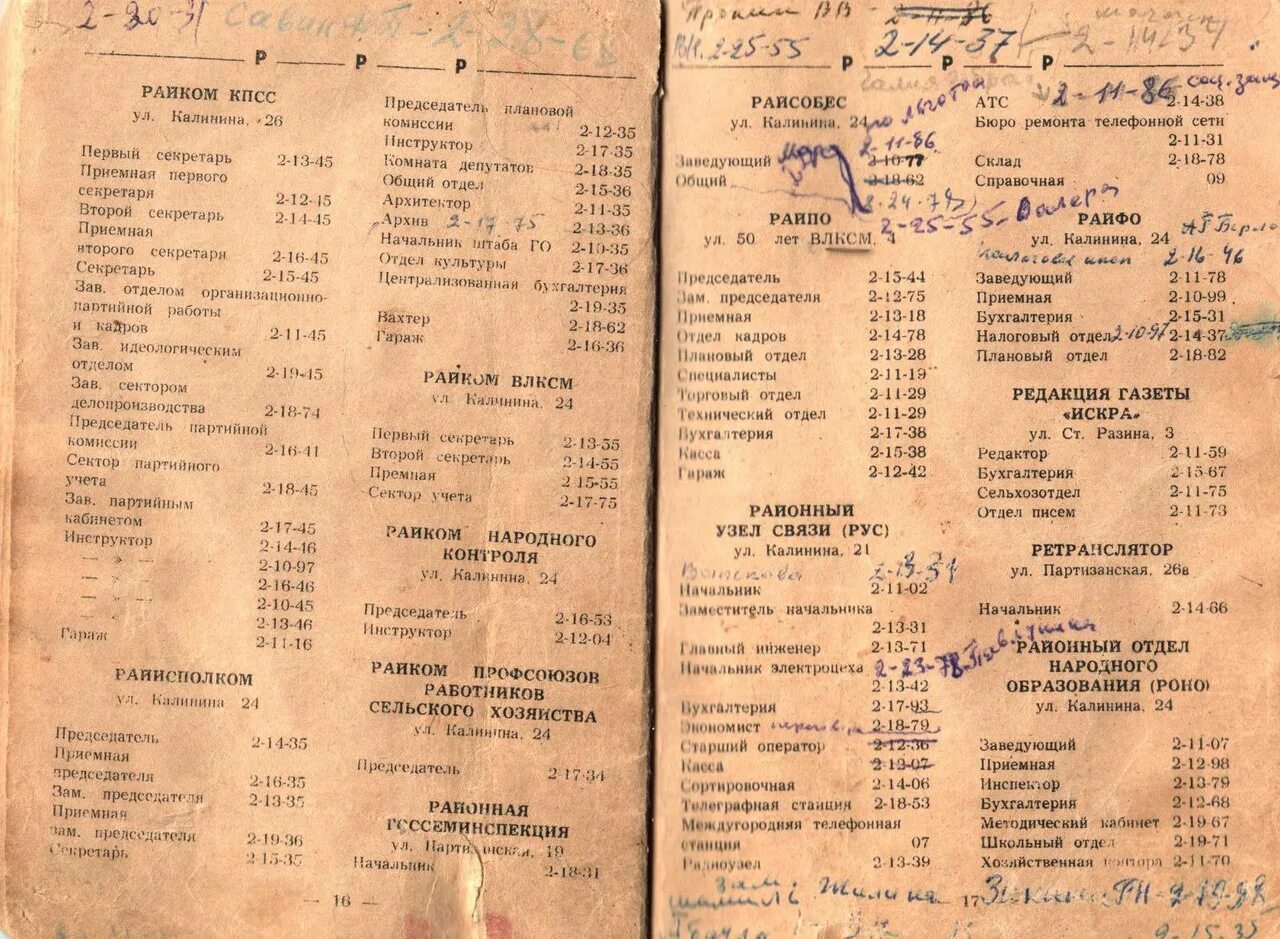 2-20-31
2-28-68
Р Р Р
РАЙКОМ КПСС
ул. Калинина, 26
Первый секретарь 2-13-45
Приемная первого
секретаря 2-12-45
Второй секретарь 2-14-45
Приемная
второго секретаря 2-16-45
Секретарь 2-15-45
Зав. отделом организационно-
партийной работы
и кадров 2-11-45
Зав. идеологическим
отделом 2-19-45
Зав. сектором
делопроизводства 2-18-74
Председатель партийной
комиссии 2-16-41
Сектор партийного
учета 2-18-45
Зав. партийным
кабинетом 2-17-45
Инструктор 2-14-46
— » — 2-10-97
— » — 2-16-46
— » — 2-10-45
2-13-46
Гараж 2-11-16
РАЙИСПОЛКОМ
ул. Калинина 24
Председатель 2-14-35
Приемная
председателя 2-16-35
Зам. председателя 2-13-35
Приемная
зам. председателя 2-19-36
Секретарь 2-15-35
Председатель плановой
комиссии 2-12-35
Инструктор 2-17-35
Комната депутатов 2-18-35
Общий отдел 2-15-36
Архитектор 2-11-35
Архив 2-17-75 2-13-36
Начальник штаба ГО 2-10-35
Отдел культуры 2-17-36
Централизованная бухгалтерия
2-19-35
Вахтер 2-18-62
Гараж 2-16-36
РАЙКОМ ВЛКСМ
ул Калинина, 24
Первый секретарь 2-13-55
Второй секретарь 2-14-55
Премная 2 15-55
Сектор учета 2-17-75
РАЙКОМ НАРОДНОГО
КОНТРОЛЯ
ул. Калинина, 24
Председатель 2-16-53
Инструктор 2-12-04
РАЙКОМ ПРОФСОЮЗОВ
РАБОТНИКОВ
СЕЛЬСКОГО ХОЗЯЙСТВА
ул. Калинина, 24
Председатель 2-17-34
РАЙОННАЯ
ГОССЕМИНСПЕКЦИЯ
ул. Партизанская, 19
Начальник 2-18-31
— 16 —
ВВ - 2-11-86
2-25-55 2-14-37 2-14-37
Р Р Р
РАЙСОБЕС
ул. Калинина, 24
2-11-86
Заведующий 2-10-77
Общий 2-18-62
2-25-55 - Валера
РАЙПО
ул. 50 лет ВЛКСМ, 4
Председатель 2-15-44
Зам. председателя 2-12-75
Приемная 2-13-18
Отдел кадров 2-14-78
Плановый отдел 2-13-28
Специалисты 2-11-19
Торговый отдел 2-11-29
Технический отдел 2-11-29
Бухгалтерия 2-17-38
Касса 2-15-38
Гараж 2-12-42
РАЙОННЫЙ
УЗЕЛ СВЯЗИ (РУС)
ул. Калинина, 21
Начальник 2-11-02
Заместитель начальника
2-13-31
Главный инженер 2-13-71
Начальник электроцеха 2-23-78
2-13-42
Бухгалтерия 2-17-93
Экономист 2-18-79
Старший оператор 2-12-36
Касса 2-12-07
Сортировочная 2-14-06
Телеграфная станция 2-18-53
Междугородняя телефонная
станция 07
Радиоузел 2-13-39
Зам. Жилина
2-11-86 соц. защ
АТС 2-14-38
Бюро ремонта телефонной сети
2-11-31
Склад 2-18-78
Справочная 09
РАЙФО
ул. Калинина, 24
2-16-46
Заведующий 2-11-78
Приемная 2-10-99
Бухгалтерия 2-15-31
Налоговый отдел 2-10-97 2-14-37
Плановый отдел 2-18-82
РЕДАКЦИЯ ГАЗЕТЫ
«ИСКРА»
ул. Ст. Разина, 3
Редактор 2-11-59
Бухгалтерия 2-15-67
Сельхозотдел 2-11-75
Отдел писем 2-11-73
РЕТРАНСЛЯТОР
ул. Партизанская, 26а
Начальник 2-14-66
РАЙОННЫЙ ОТДЕЛ
НАРОДНОГО
ОБРАЗОВАНИЯ (РОНО)
ул. Калинина, 24
Заведующий 2-11-07
Приемная 2-12-98
Инспектор 2-13-79
Бухгалтерия 2-12-68
Методический кабинет 2-19-67
Школьный отдел 2-19-71
Хозяйственная контора 2-11-70
17
2-15-35